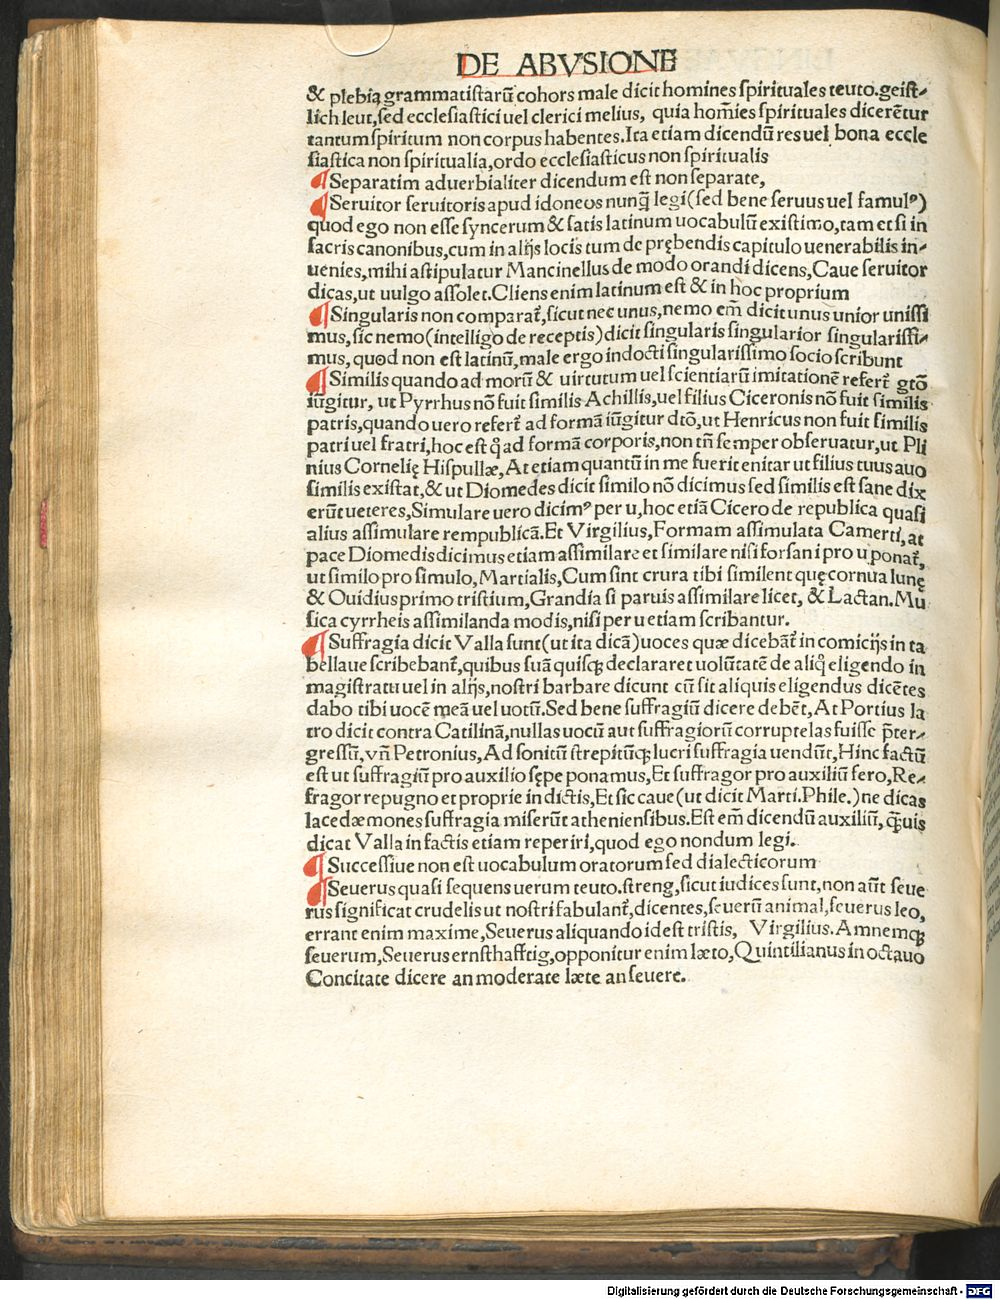 DE ABVSIONE
& plebią grammatistarū cohors male dicit homines spirituales teuto. geist-
lich leut, sed ecclesiastici uel clerici melius, quia hom̄ies spirituales dicerētur
tantum spiritum non corpus habentes. Ita etiam dicendū res uel bona eccle
siastica non spiritualia, ordo ecclesiasticus non spiritualis
¶ Separatim aduerbialiter dicendum est non separate,
¶ Seruitor seruitoris apud idoneos nunq̄ legi (sed bene seruus uel famulꝰ)
quod ego non esse syncerum & satis latinum uocabulū existimo, tam etsi in
sacris canonibus, cum in alijs locis tum de prębendis capitulo uenerabilis in-
uenies, mihi astipulatur Mancinellus de modo orandi dicens, Caue seruitor
dicas, ut uulgo assolet. Cliens enim latinum est & in hoc proprium
¶ Singularis non comparat᷑, sicut nec unus, nemo em̄ dicit unus unior unissi
mus, sic nemo (intelligo de receptis) dicit singularis singularior singularissi-
mus, quod non est latinū, male ergo indocti singularissimo socio scribunt
¶ Similis quando ad morū & uirtutum uel scientiarū imitationē refert᷑ gtō
iūgitur, ut Pyrrhus nō fuit similis Achillis, uel filius Ciceronis nō fuit similis
patris, quando uero refert᷑ ad formā iūgitur dtō, ut Henricus non fuit similis
patri uel fratri, hoc est q̊ ad formā corporis, non tn̄ semper obseruatur, ut Pli
nius Cornelię Hispullæ, At etiam quantū in me fuerit enitar ut filius tuus auo
similis existat, & ut Diomedes dicit similo nō dicimus sed similis est sane dix
erūt ueteres, Simulare uero dicimꝰ per u, hoc etiā Cicero de republica quasi
alius assimulare rempublicā. Et Virgilius, Formam assimulata Camerti, at
pace Diomedis dicimus etiam assimilare et similare nisi forsan i pro u ponat᷑,
ut similo pro simulo, Martialis, Cum sint crura tibi similent quę cornua lunę
& Ouidius primo tristium, Grandia si paruis assimilare licet, & Lactan. Mu
sica cyrrheis assimilanda modis, nisi per u etiam scribantur.
¶ Suffragia dicit Valla sunt (ut ita dicā) uoces quæ dicebāt᷑ in comicijs in ta
bellaue scribebant᷑, quibus suā quisq; declararet uolūtatē de aliq̊ eligendo in
magistratu uel in alijs, nostri barbare dicunt cū sit aliquis eligendus dicētes
dabo tibi uocē meā uel uotū. Sed bene suffragiū dicere debēt, At Portius la
tro dicit contra Catilinā, nullas uocū aut suffragiorū corruptelas fuisse p̄ter-
gressū, vn̄ Petronius, Ad sonitū strepitūq; lucri suffragia uendūt, Hinc factū
est ut suffragiū pro auxilio sępe ponamus, Et suffragor pro auxiliū fero, Re-
fragor repugno et proprie in dictis, Et sic caue (ut dicit Marti. Phile.) ne dicas
lacedæmones suffragia miserūt atheniensibus. Est em̄ dicendū auxiliū, q̄uis
dicat Valla in factis etiam reperiri, quod ego nondum legi.
¶ Successiue non est uocabulum oratorum sed dialecticorum
¶ Seuerus quasi sequens uerum teuto. streng, sicut iudices sunt, non aūt seue
rus significat crudelis ut nostri fabulant᷑, dicentes, seuerū animal, seuerus leo,
errant enim maxime, Seuerus aliquando id est tristis, Virgilius. Amnemq;
seuerum, Seuerus ernsthafftig, opponitur enim læto, Quintilianus in octauo
Concitate dicere an moderate læte an seuere.
Digitalisierung gefördert durch die Deutsche Forschungsgemeinschaft - DFG